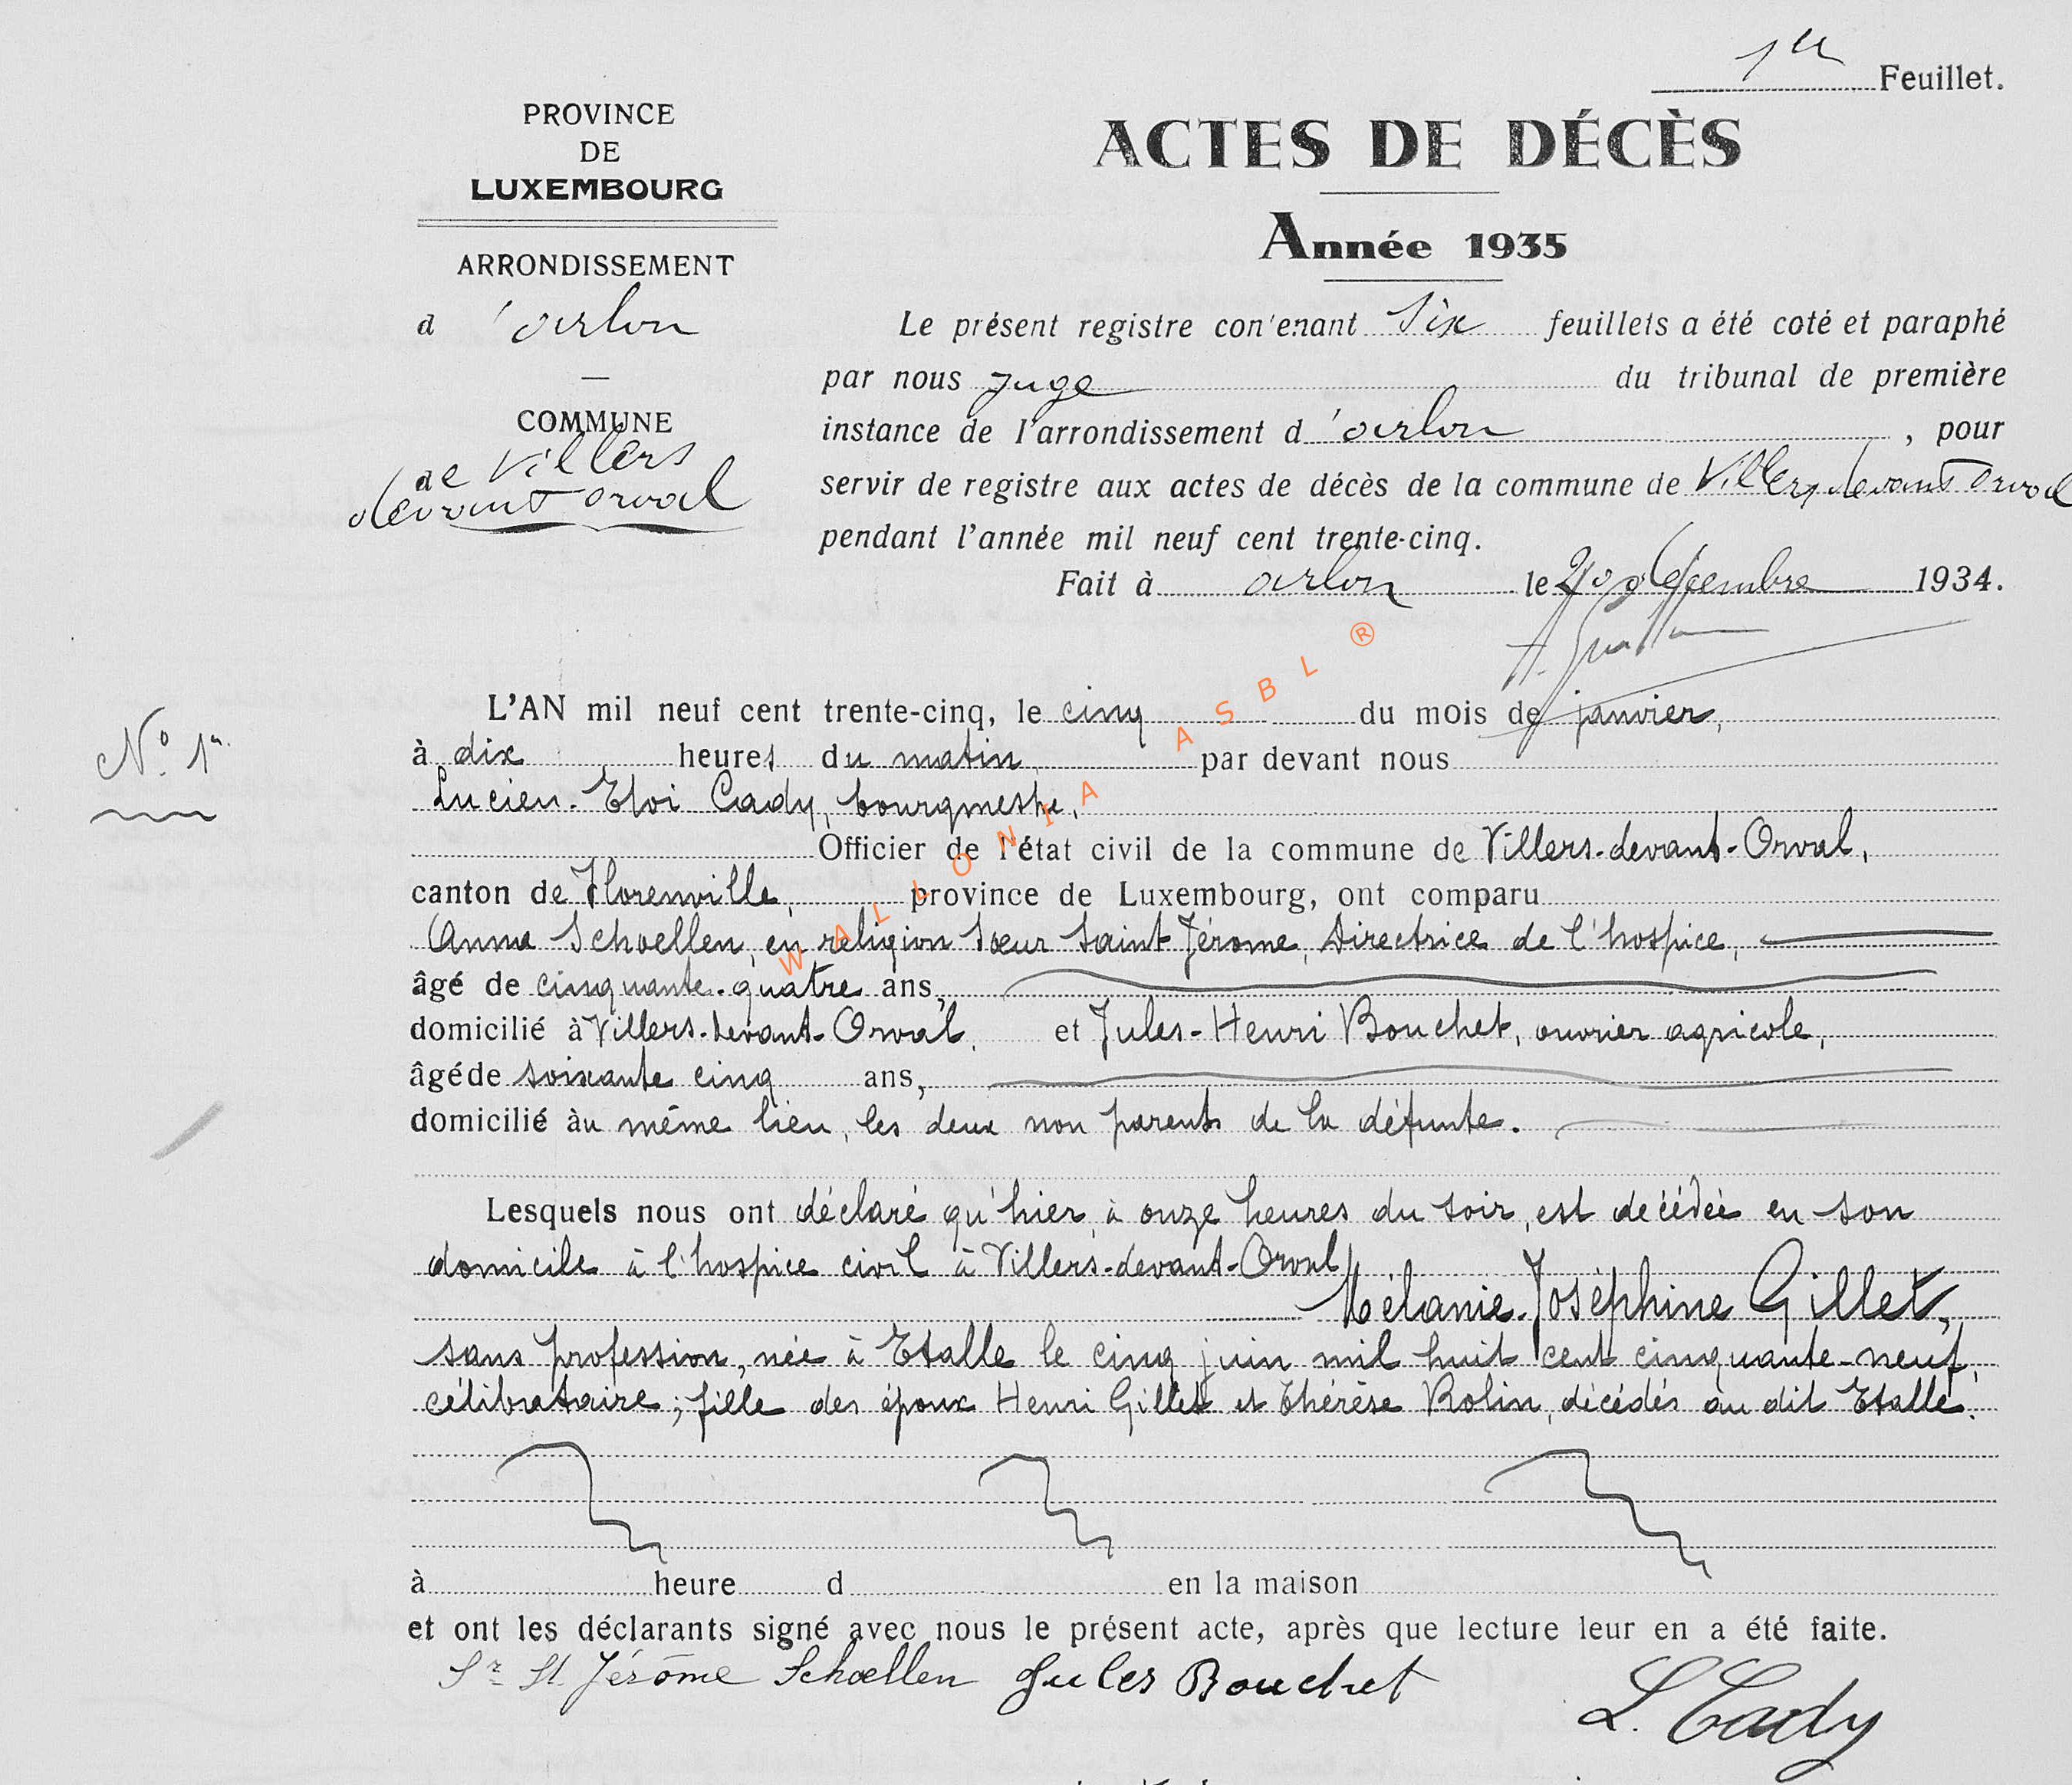 1er Feuillet.
PROVINCE
DE
LUXEMBOURG
ARRONDISSEMENT
d 'arlon
COMMUNE
de Villers
devant orval
ACTES DE DÉCÈS
Année 1935
Le présent registre con'enant six feuillets a été coté et paraphé
par nous juge du tribunal de première
instance de l'arrondissement d 'arlon, pour
servir de registre aux actes de décès de la commune de Villers devant Orval
pendant l'année mil neuf cent trente-cinq.
Fait à arlon le décembre 1934.
N° 1er
L'AN mil neuf cent trente-cinq, le cinq du mois de janvier,
à dix heures du matin par devant nous
Lucien-Eloi Cady, bourgmestre,
Officier de l'état civil de la commune de Villers-devant-Orval,
canton de Florenville, province de Luxembourg, ont comparu
Anna Schoellen, en religion Sœur Saint Jérome, Directrice de l'hospice,
âgé de cinquante-quatre ans,
domicilié à Villers-devant-Orval, et Jules-Henri Bouchet, ouvrier agricole,
âgé de soixante cinq ans,
domicilié àu même lieu, les deux non parents de la défunte.
Lesquels nous ont déclaré qu'hier, à onze heures du soir, est décédée en son
domicile à l'hospice civil à Villers-devant-Orval
Mélanie-Joséphine Gillet,
sans profession, née à Etalle le cinq juin mil huit cent cinquante-neuf,
célibataire; fille des époux Henri Gillet et Thérèse Rolin, décédés au dit Etalle.
à heure d en la maison
et ont les déclarants signé avec nous le présent acte, après que lecture leur en a été faite.
Sr St Jérôme Schœllen Jules Bouchet
L. Cady
WALLONIA ASBL ®